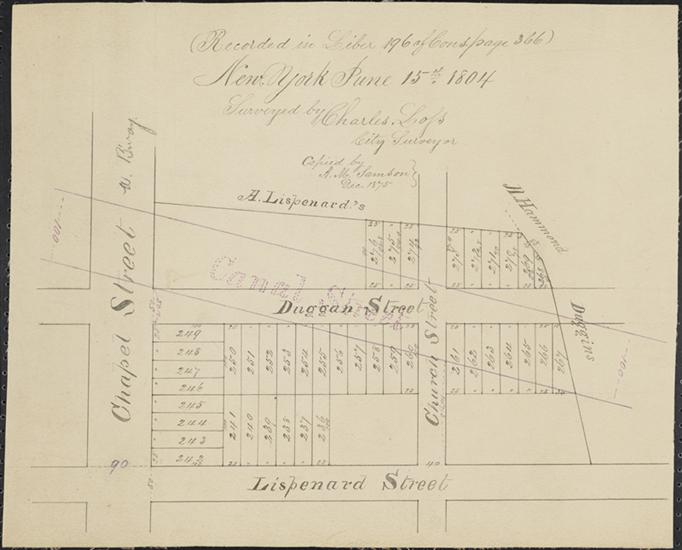 (Recorded in Liber 196 of Cons page 366)
New York June 15th 1804
Surveyed by Charles Loss
City Surveyor
Copied by
Dec. 1875
W. Bway
A. Lispenard's
Hammond
Duggins
Chapel Street
Canal Street
Duggan Street
Church Street
Lispenard Street
100
100
90
40
276
275
274
273
272
271
270
269
249
248
247
246
245
244
243
242
250
251
252
253
254
255
256
257
258
259
260
261
262
263
264
265
266
267
241
240
239
238
237
236